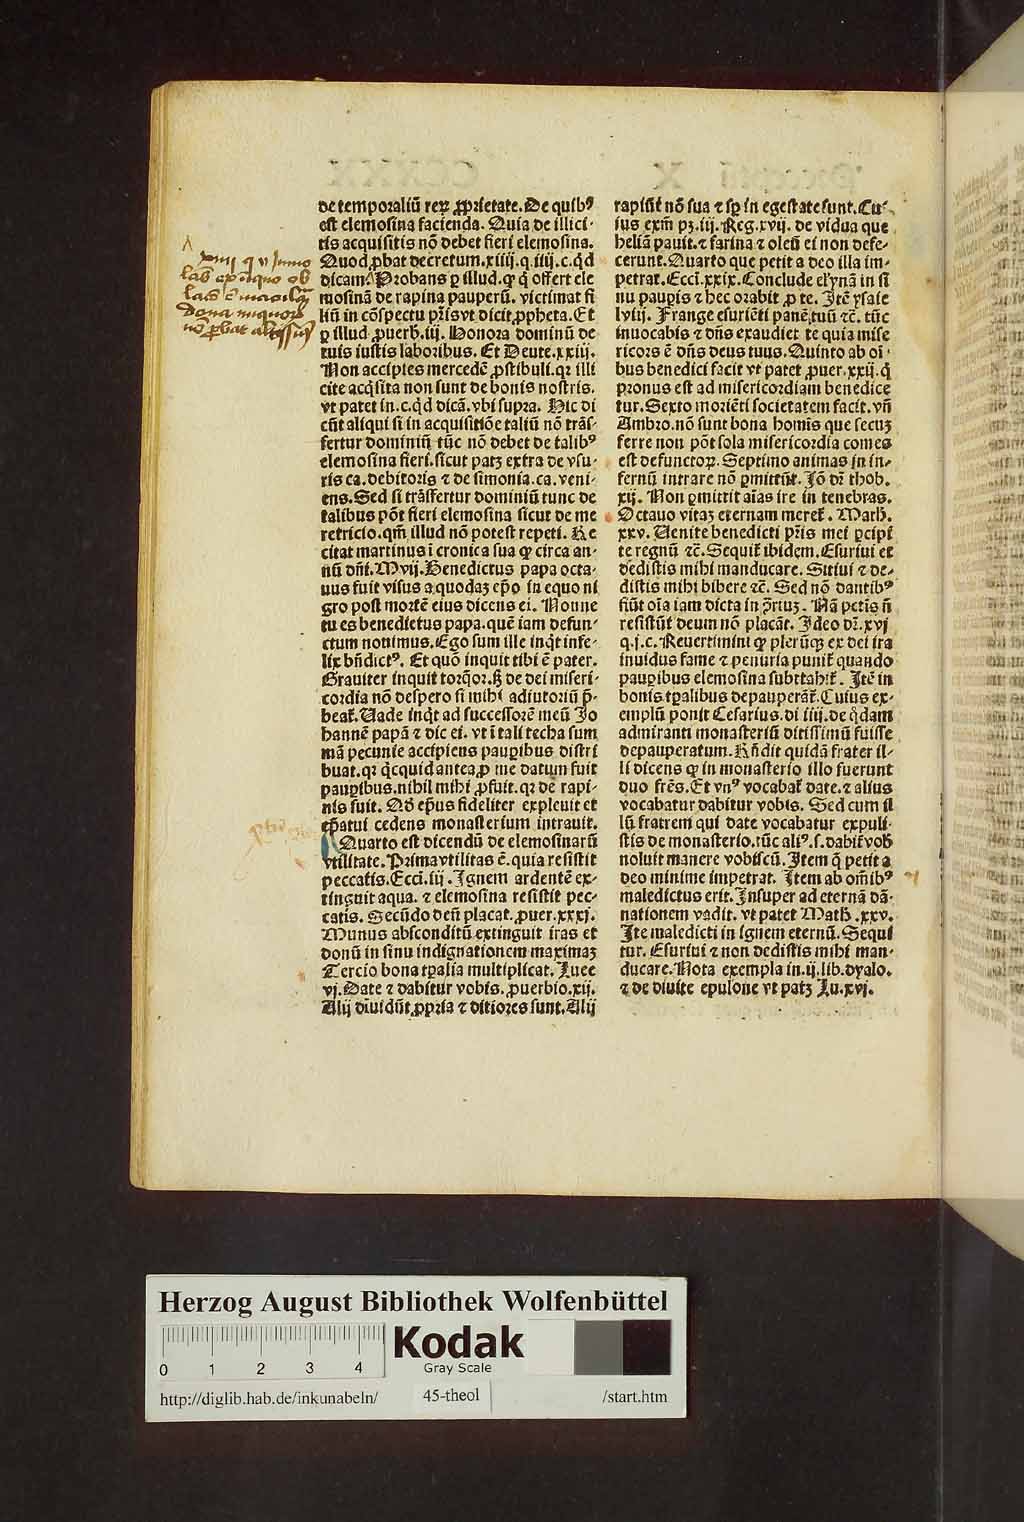 de temporaliū reꝝ ꝓprietate. De quibꝰ
est elemosina facienda. Quia de illici-
tis acquisitis nō debet fieri elemosina.
Quod ꝓbat decretum. xiiij. q. iiij. c. qd
dicam. Probans ꝑ illud. ꝙ q̇ offert ele
mosinā de rapina pauperū. victimat fi
liū in cōspectu pr̄is vt dicit ꝓpheta. Et
ꝑ illud ꝓuerb. iij. Honora dominū de
tuis iustis laboribus. Et Deute. xxiij.
Non accipies mercedē ꝓstibuli. qꝛ illi
cite acq̇sita non sunt de bonis nostris.
vt patet in. c. qd dicā. vbi supra. Hic di
cūt aliqui si in acquisitiōe taliū nō trās-
fertur dominiū tūc nō debet de talibꝰ
elemosina fieri. sicut patꝫ extra de vsu-
ris ca. debitoris ⁊ de simonia. ca. veni-
ens. Sed si trāssertur dominiū tunc de
talibus pōt fieri elemosina sicut de me
retricio. qm̄ illud nō potest repeti. Re
citat martinus ī cronica sua ꝙ circa an-
nū dn̄i. Mvij. Benedictus papa octa-
uus fuit visus a quodaꝫ ep̄o in equo ni
gro post mortē eius dicens ei. Nonne
tu es benedictus papa. quē iam defun-
ctum nouimus. Ego sum ille inq̇t infe-
lix bn̄dictꝰ. Et quō inquit tibi ē pater.
Grauiter inquit torq̄or. sꝫ de dei miseri-
cordia nō despero si mihi adiutoriū p̄-
beat᷑. Vade inq̇t ad successorē meū Jo
hannē papā ⁊ dic ei. vt ī tali techa sum
mā pecunie accipiens pauꝑibus distri
buat. qꝛ q̇cquid antea ꝓ me datum fuit
pauꝑibus. nihil mihi ꝓfuit. qꝛ de rapi-
nis fuit. Qd̄ ep̄us fideliter expleuit et
ep̄atui cedens monasterium intrauit.
Quarto est dicendū de elemosinarū
vtilitate. Prima vtilitas ē. quia resistit
peccatis. Ecci. iij. Ignem ardentē ex-
tinguit aqua. ⁊ elemosina resistit pec-
catis. Secūdo deū placat. ꝓuer. xxxj.
Munus absconditū extinguit iras et
donū in sinu indignationem maximaꝫ
Tercio bona tꝑalia multiplicat. Luce
vj. Date ⁊ dabitur vobis. ꝓuerbio. xij.
Alij diuidūt ꝓpria ⁊ ditiores sunt. Alij
rapiūt nō sua ⁊ sꝑ in egestate sunt. Cu-
ius exm̄ pꝫ. iij. Reg. xvij. de vidua que
heliā pauit. ⁊ farina ⁊ oleū ei non defe-
cerunt. Quarto que petit a deo illa im-
petrat. Ecci. xxix. Conclude elynā in si
nu pauꝑis ⁊ hec orabit ꝓ te. Itē ysaie
lviij. Frange esuriēti panē tuū ⁊c̄. tūc
inuocabis ⁊ dn̄s exaudiet te quia mise
ricors ē dn̄s deus tuus. Quinto ab oī-
bus benedici facit vt patet ꝓuer. xxij. q̇
pronus est ad misericordiam benedice
tur. Sexto moriēti societatem facit. vn̄
Ambro. nō sunt bona homīs que secuꝫ
ferre non pōt sola misericordia comes
est defunctoꝝ. Septimo animas in in-
fernū intrare nō ꝑmittūt. Jō dꝛ̄ thob.
xij. Non ꝑmittit aīas ire in tenebras.
Octauo vitaꝫ eternam meret᷑. Math.
xxv. Uenite benedicti pr̄is mei ꝑcipi
te regnū ⁊c̄. Sequit᷑ ibidem. Esuriui et
dedistis mihi manducare. Sitiui ⁊ de-
distis mihi bibere ⁊c̄. Sed nō dantibꝰ
fiūt oīa iam dicta in ꝯ̄triuꝫ. Nā petīs n̄
resistūt deum nō placāt. Ideo dꝛ̄. xvj
q. j. c. Reuertimini ꝙ plerūqꝫ ex dei ira
inuidus fame ⁊ penuria punit᷑ quando
pauꝑibus elemosina subtrahit᷑. Itē in
bonis tꝑalibus depauperāt᷑. Cuius ex-
emplū ponit Cesarius. di iiij. de q̇dam
admiranti monasteriū ditissimū fuisse
depauperatum. Rn̄dit quidā frater il-
li dicens ꝙ in monasterio illo fuerunt
duo frēs. Et vnꝰ vocabat᷑ date. ⁊ alius
vocabatur dabitur vobis. Sed cum il
lū fratrem qui date vocabatur expuli-
stis de monasterio. tūc aliꝰ. s. dabit᷑ vob
noluit manere vobiscū. Item q̇ petit a
deo minime impetrat. Item ab om̄ibꝰ
maledictus erit. Insuper ad eternā dā-
nationem vadit. vt patet Math. xxv.
Ite maledicti in ignem eternū. Sequi
tur. Esuriui ⁊ non dedistis mihi man-
ducare. Nota exempla in. ij. lib. dyalo.
⁊ de diuite epulone vt patꝫ Lu. xvj.
Herzog August Bibliothek Wolfenbüttel
0 1 2 3 4
Kodak
Gray Scale
http://diglib.hab.de/inkunabeln/ 45-theol /start.htm